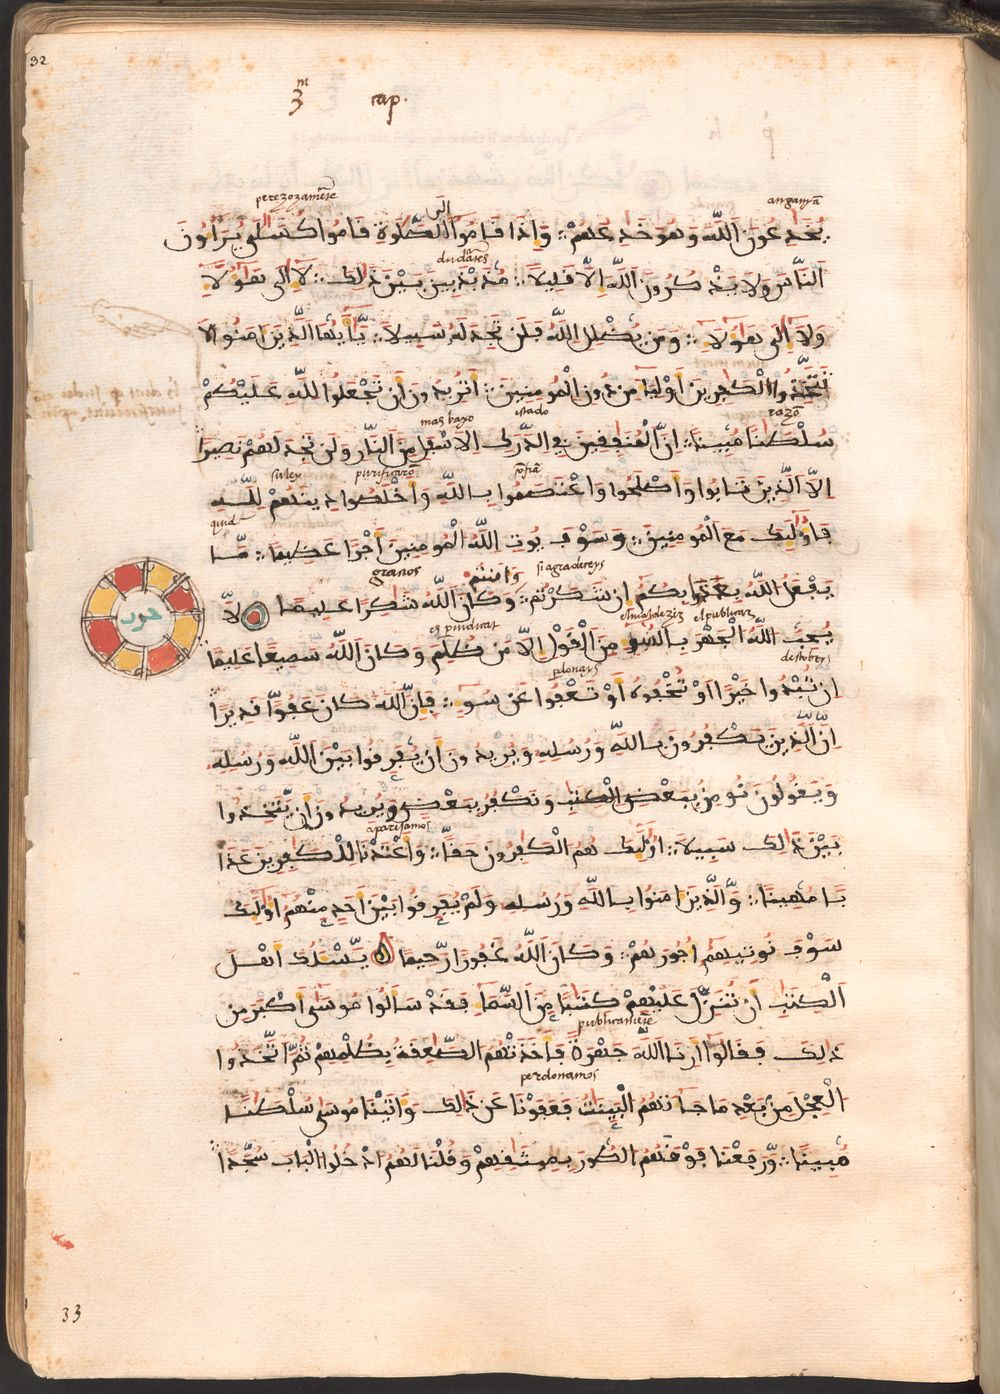 32
3m cap.
perezozamẽte anganyã
يُخَٰدِعُونَ اَ۬للَّهَ وَهُوَ خَٰدِعُهُمْ وَإِذَا قَامُوا إِلَى اَ۬لصَّلَوٰةِ قَامُوا كُسَالَىٰ يُرَآءُونَ
dudãtes
اَ۬لنَّاسَ وَلَا يَذْكُرُونَ اَ۬للَّهَ إِلَّا قَلِيلًا مُّذَبْذَبِينَ بَيْنَ ذَٰلِكَ لَا إِلَىٰ هَٰؤُلَآءِ
وَلَا إِلَىٰ هَٰؤُلَآءِ وَمَن يُضْلِلِ اِ۬للَّهُ فَلَن تَجِدَ لَهُ سَبِيلًا يَٰأَيُّهَا اَ۬لَّذِينَ ءَامَنُوا لَا
تَتَّخِذُوا اُ۬لْكَٰفِرِينَ أَوْلِيَآءَ مِن دُونِ اِ۬لْمُومِنِينَ أَتُرِيدُونَ أَن تَجْعَلُوا لِلَّهِ عَلَيْكُمْ
mas baxo istado razõ
سُلْطَٰنًا مُّبِينًا إِنَّ اَ۬لْمُنَٰفِقِينَ فِي اِ۬لدَّرَكِ اِ۬لْأَسْفَلِ مِنَ اَ۬لنَّارِ وَلَن تَجِدَ لَهُمْ نَصِيرًا
su ley purificarõ cõfiã
إِلَّا اَ۬لَّذِينَ تَابُوا وَأَصْلَحُوا وَاعْتَصَمُوا بِاللَّهِ وَأَخْلَصُوا دِينَهُمْ لِلَّهِ
quid
فَأُوْلَٰئِكَ مَعَ اَ۬لْمُومِنِينَ وَسَوْفَ يُوتِ اِ۬للَّهُ اُ۬لْمُومِنِينَ أَجْرًا عَظِيمًا مَّا
granos وءامنتم si agradereys
يَفْعَلُ اُ۬للَّهُ بِعَذَابِكُمْ إِن شَكَرْتُمْ وَكَانَ اَ۬للَّهُ شَاكِرًا عَلِيمًا لَّا
حزب
es pindicat el mal dezir el publicar
يُحِبُّ اُ۬للَّهُ اُ۬لْجَهْرَ بِالسُّوءِ مِنَ اَ۬لْقَوْلِ إِلَّا مَن ظُلِمَ وَكَانَ اَ۬للَّهُ سَمِيعًا عَلِيمًا
pdonays
إِن تُبْدُوا خَيْرًا أَوْ تُخْفُوهُ أَوْ تَعْفُوا عَن سُوءٍ فَإِنَّ اَ۬للَّهَ كَانَ عَفُوًّا قَدِيرًا
إِنَّ اَ۬لَّذِينَ يَكْفُرُونَ بِاللَّهِ وَرُسُلِهِ وَيُرِيدُونَ أَن يُفَرِّقُوا بَيْنَ اَ۬للَّهِ وَرُسُلِهِ
وَيَقُولُونَ نُومِنُ بِبَعْضِ اِ۬لْكِتَٰبِ وَنَكْفُرُ بِبَعْضٍ وَيُرِيدُونَ أَن يَّتَّخِذُوا
aparejamos
بَيْنَ ذَٰلِكَ سَبِيلًا أُوْلَٰئِكَ هُمُ اُ۬لْكَٰفِرُونَ حَقًّا وَأَعْتَدْنَا لِلْكَٰفِرِينَ عَذَا
بًا مُّهِينًا وَّالَّذِينَ ءَامَنُوا بِاللَّهِ وَرُسُلِهِ وَلَمْ يُفَرِّقُوا بَيْنَ أَحَدٍ مِّنْهُمُ أُوْلَٰئِكَ
سَوْفَ نُوتِيهِمُ أُجُورَهُمْ وَكَانَ اَ۬للَّهُ غَفُورًا رَّحِيمًا يَسْـَٔلُكَ أَهْلُ
اُ۬لْكِتَٰبِ أَن تُنَزِّلَ عَلَيْهِمْ كِتَٰبًا مِّنَ اَ۬لسَّمَآءِ فَقَدْ سَأَلُوا مُوسَىٰ أَكْبَرَ مِن
publicamẽte
ذَٰلِكَ فَقَالُوا أَرِنَا اَ۬للَّهَ جَهْرَةً فَأَخَذَتْهُمُ اُ۬لصَّٰعِقَةُ بِظُلْمِهِمْ ثُمَّ اَ۪تَّخَذُوا
perdonamos
اُ۬لْعِجْلَ مِن بَعْدِ مَا جَآءَتْهُمُ اُ۬لْبَيِّنَٰتُ فَعَفَوْنَا عَن ذَٰلِكَ وَءَاتَيْنَا مُوسَىٰ سُلْطَٰنًا
مُّبِينًا وَّرَفَعْنَا فَوْقَهُمُ اُ۬لطُّورَ بِمِيثَٰقِهِمْ وَقُلْنَا لَهُمُ اُ۟دْخُلُوا اُ۬لْبَابَ سُجَّدًا
33